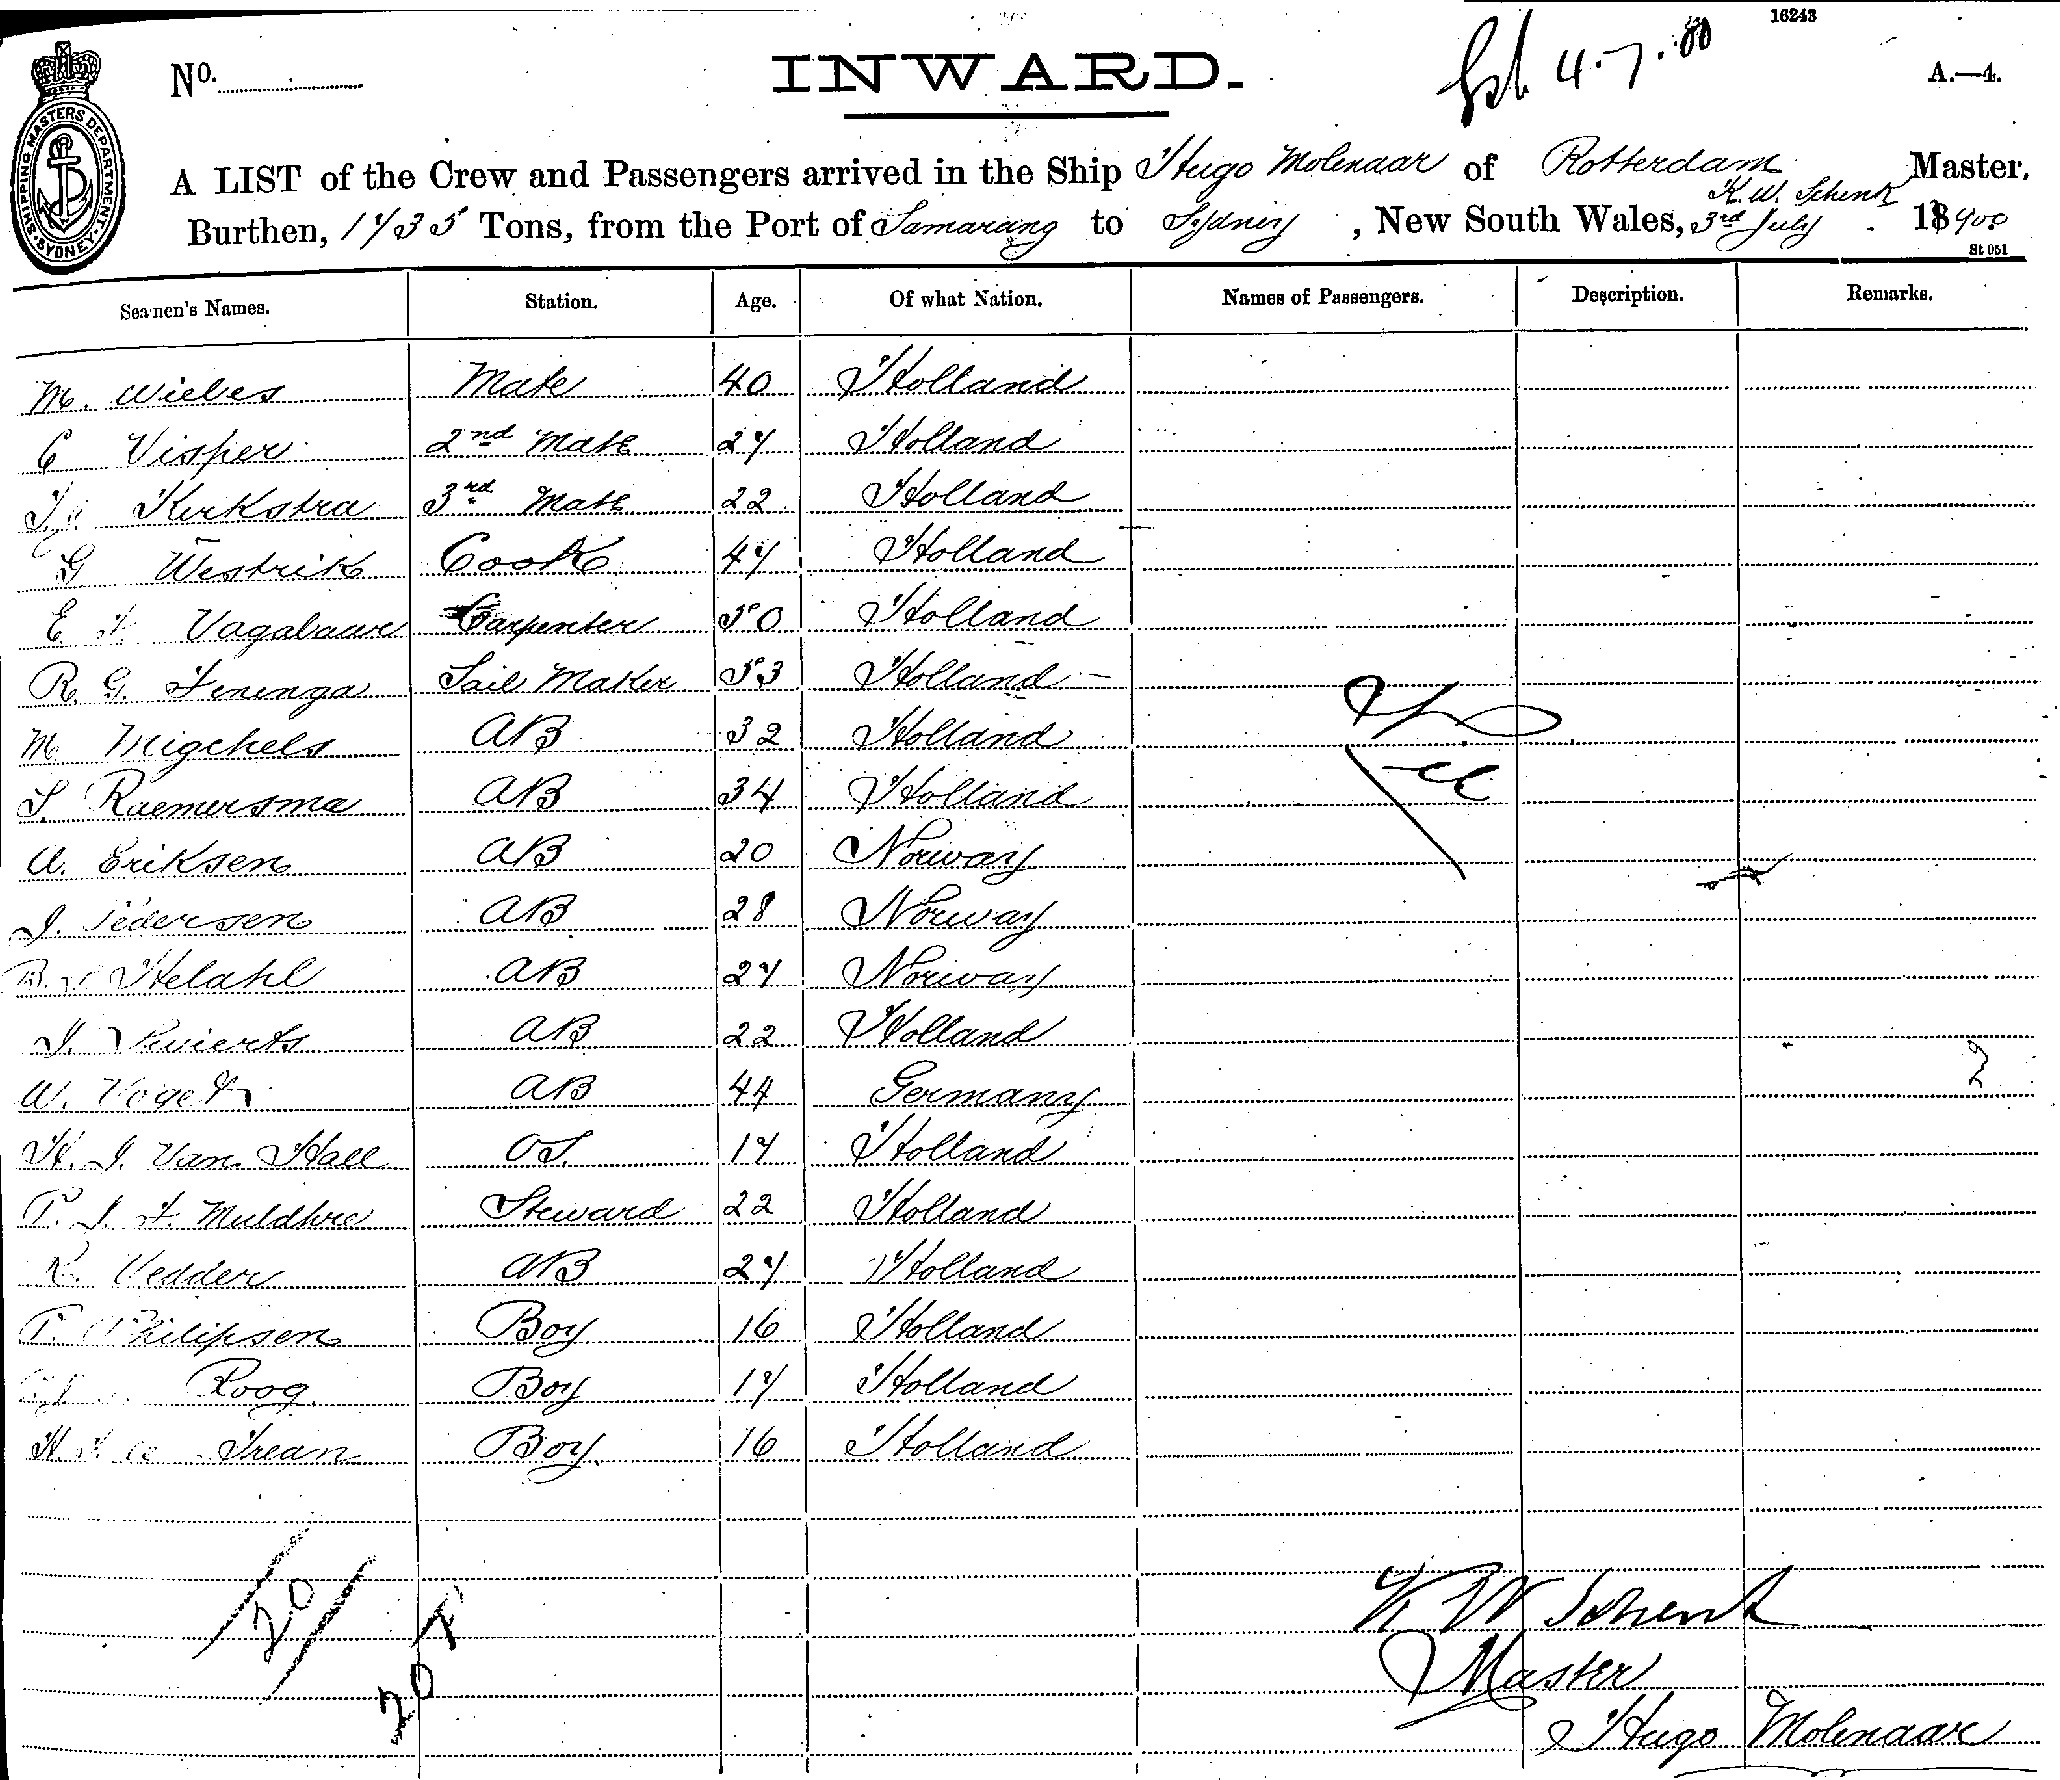 16243
No. INWARD. 4.7.00 A.—4.
SHIPPING MASTERS DEPARTMENT. SYDNEY
A LIST of the Crew and Passengers arrived in the Ship Hugo Molenaar of Rotterdam Master,
K. W. Schenk
Burthen, 1735 Tons, from the Port of Samarang to Sydney, New South Wales, 3rd July 1900
St 051
Seamen's Names. Station. Age. Of what Nation. Names of Passengers. Description. Remarks.
M. Wiebes Mate 40 Holland
C Visper 2nd Mate 27 Holland
Kirkstra 3rd Mate 22 Holland
G Westrik Cook 47 Holland
E Vagabaur Carpenter 50 Holland
R. G. Feninga Sail Maker 53 Holland
M Migchels AB 32 Holland
S. Raemersma AB 34 Holland
A. Eriksen AB 20 Norway
J. Pedersen AB 28 Norway
Helahl AB 27 Norway
J. AB 22 Holland
W. AB 44 Germany 2
H. J. Van Hall OS. 17 Holland
P. J. F. Muldhre Steward 22 Holland
Vedder AB 27 Holland
P. Philipsen Boy 16 Holland
Roog Boy 17 Holland
H. Boy 16 Holland
20
20
K W Schenk
Master
Hugo Molenaar